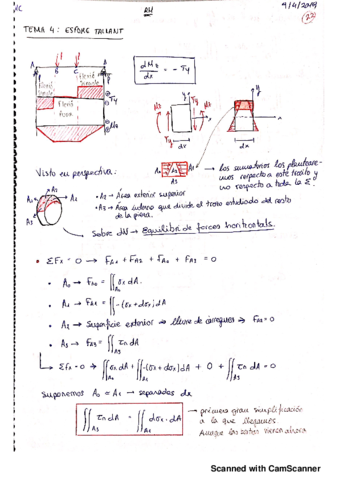 9/4/2019
TEMA 4: ESFORÇ TALLANT
dMz/dx = -Ty
A B C
Flexió Simple
Flexió Simple
Flexió Pura
Ty
Mz
dx
dx
A0 A1
A3
Visto en perspectiva:
→ los sumatorios los plantearemos respecto a este trocito y no respecto a toda la Σ!
• A2 → Área exterior superior
• A3 → Área interna que divide el trozo estudiado del resto de la pieza.
Sobre dN → Equilibri de forces horitzontals.
• ΣFx = 0 → FA0 + FA2 + FA1 + FA3 = 0
• A0 → FA0 = ∬A0 σx dA.
• A1 → FA1 = ∬ -(σx + dσx) dA
• A2 → Superficie exterior → lliure de càrregues → FA2 = 0
• A3 → FA3 = ∬A3 τn dA
↳ ΣFx = 0 → ∬A0 σx dA + ∬A1 -(σx + dσx) dA + 0 + ∬A3 τn dA = 0
Suponemos A0 ∝ A1 → separadas dx
∬A3 τn dA = ∬ dσx · dA
→ primera gran simplificación a la que llegamos.
Scanned with CamScanner